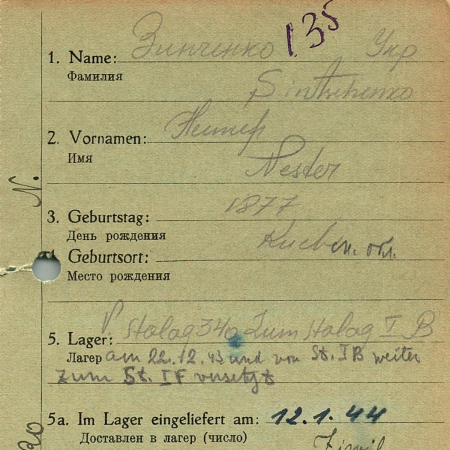 135
1. Name: Зинченко Укр
Фамилия
Sintschenko
2. Vornamen: Нестер
Имя
Nester
N.
3. Geburtstag: 1877
День рождения
Geburtsort: Киевск. обл.
Место рождения
V. Stalag 340 zum Stalag I B
5. Lager: am 22.12.43 und von St. IB weiter
Лагер
zum St. IF versetzt
5a. Im Lager eingeliefert am: 12.1.44
Доставлен в лагер (число)